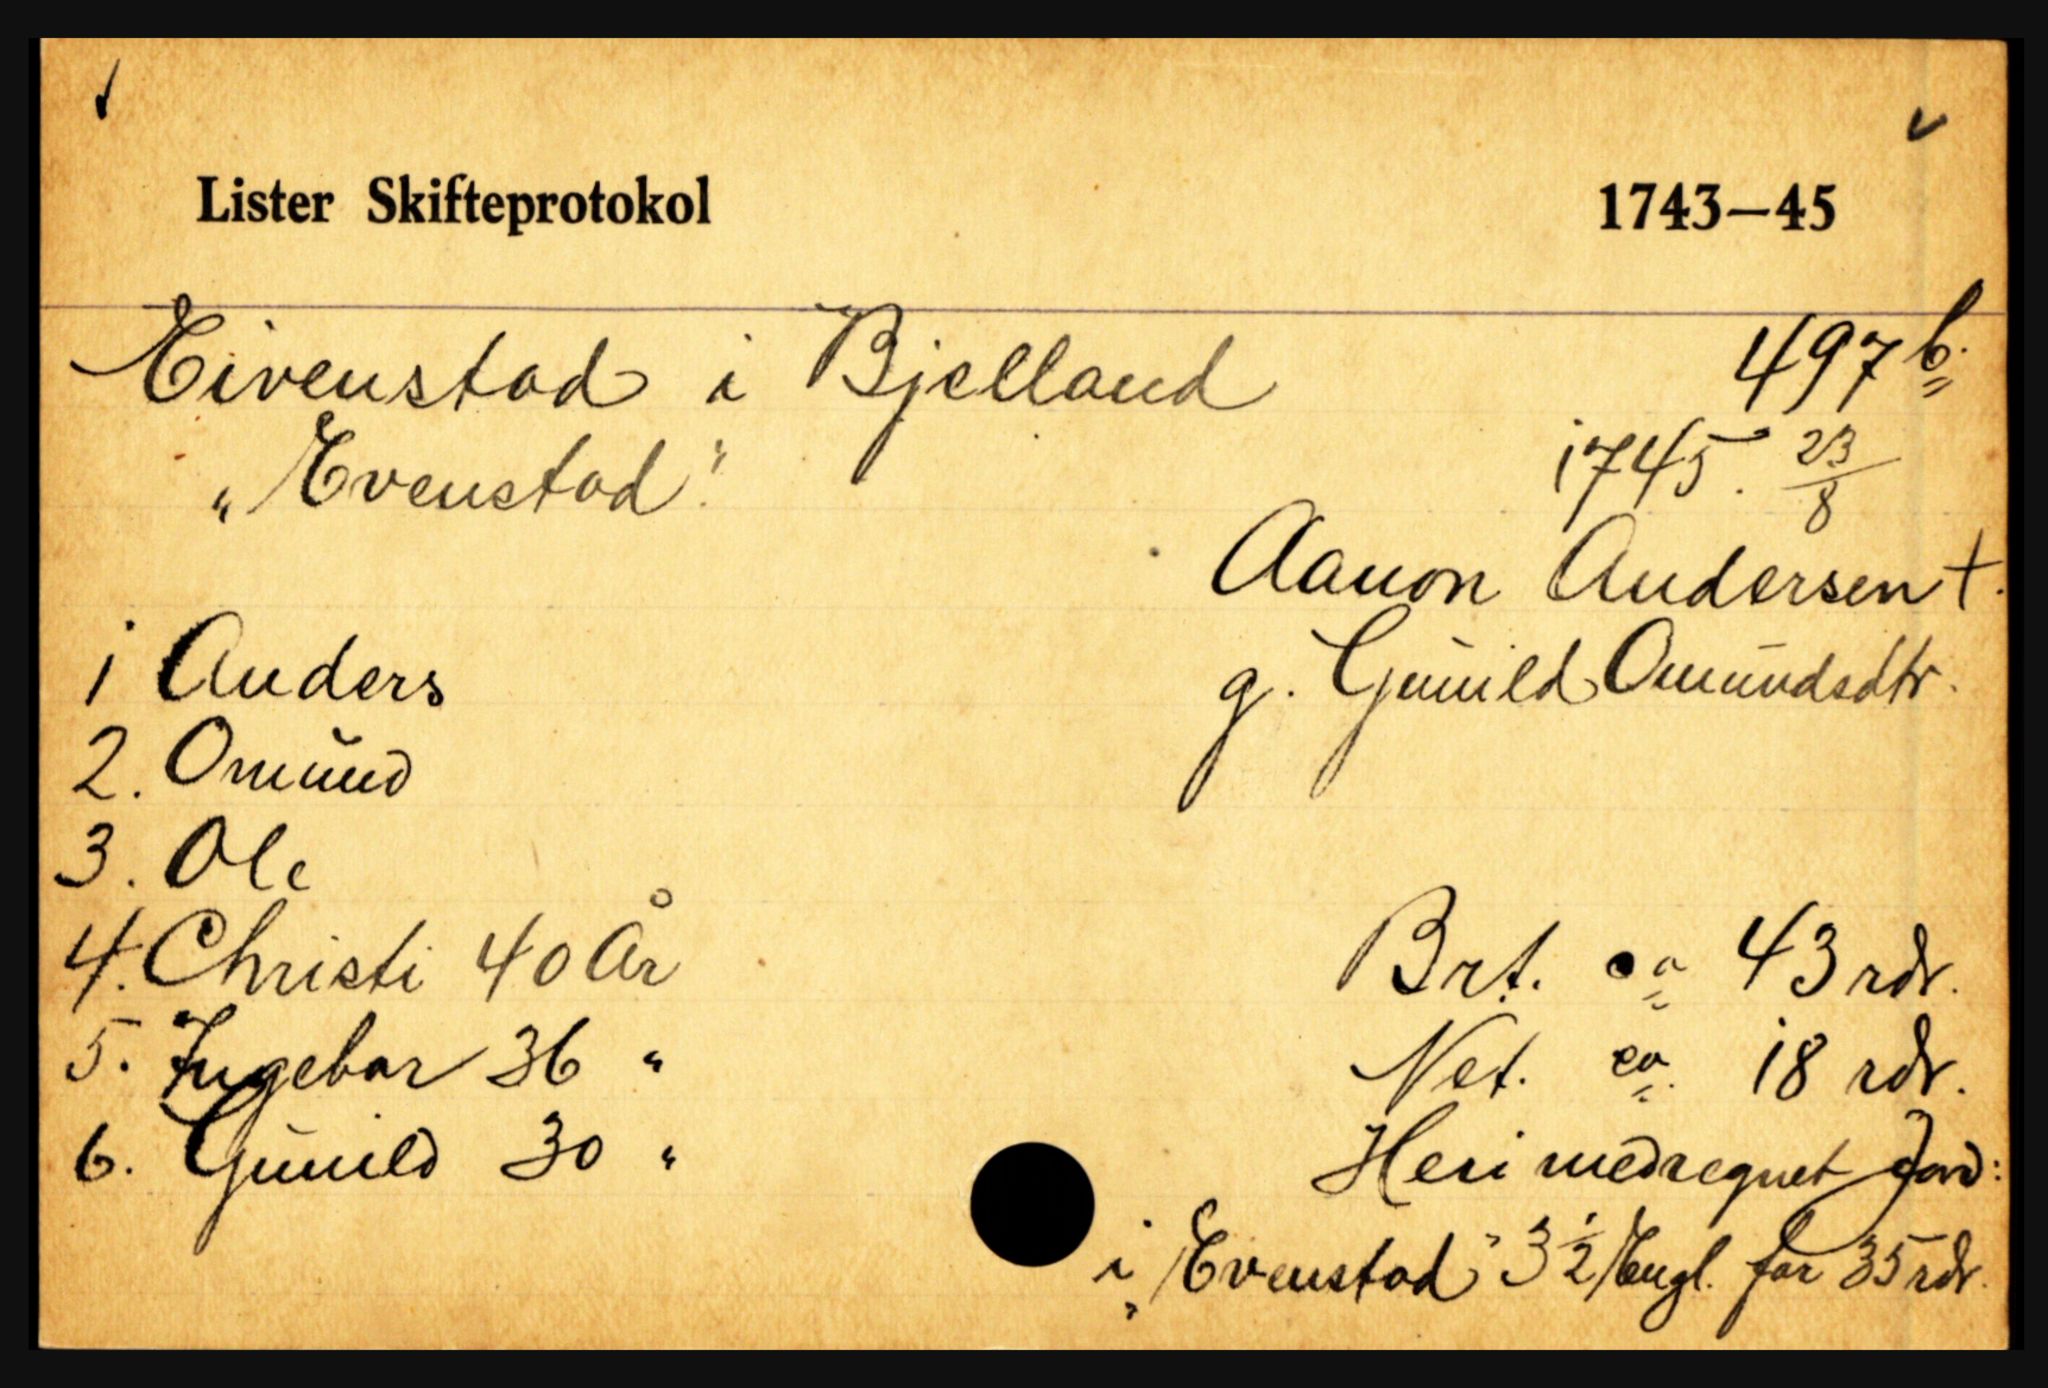 Lister Skifteprotokol 1743—45
Eivenstad i Bjelland 497 b.
„Evenstad". 1745. 23/8
Aanon Andersen †.
1 Anders g. Gunild Omundsdtr.
2. Omund
3. Ole
4. Christi 40 År Brt. ca 43 rdr.
5. Ingebor 36 " Net. ca. 18 rdr.
6. Gunild 30 " Heri medregnet Jord:
i „Evenstad" 3 1/2 Engl. for 35 rdr.